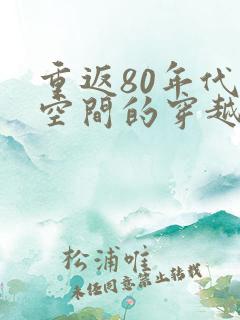 重返80年代
空間的穿越
松浦唯
未经同意禁止转载